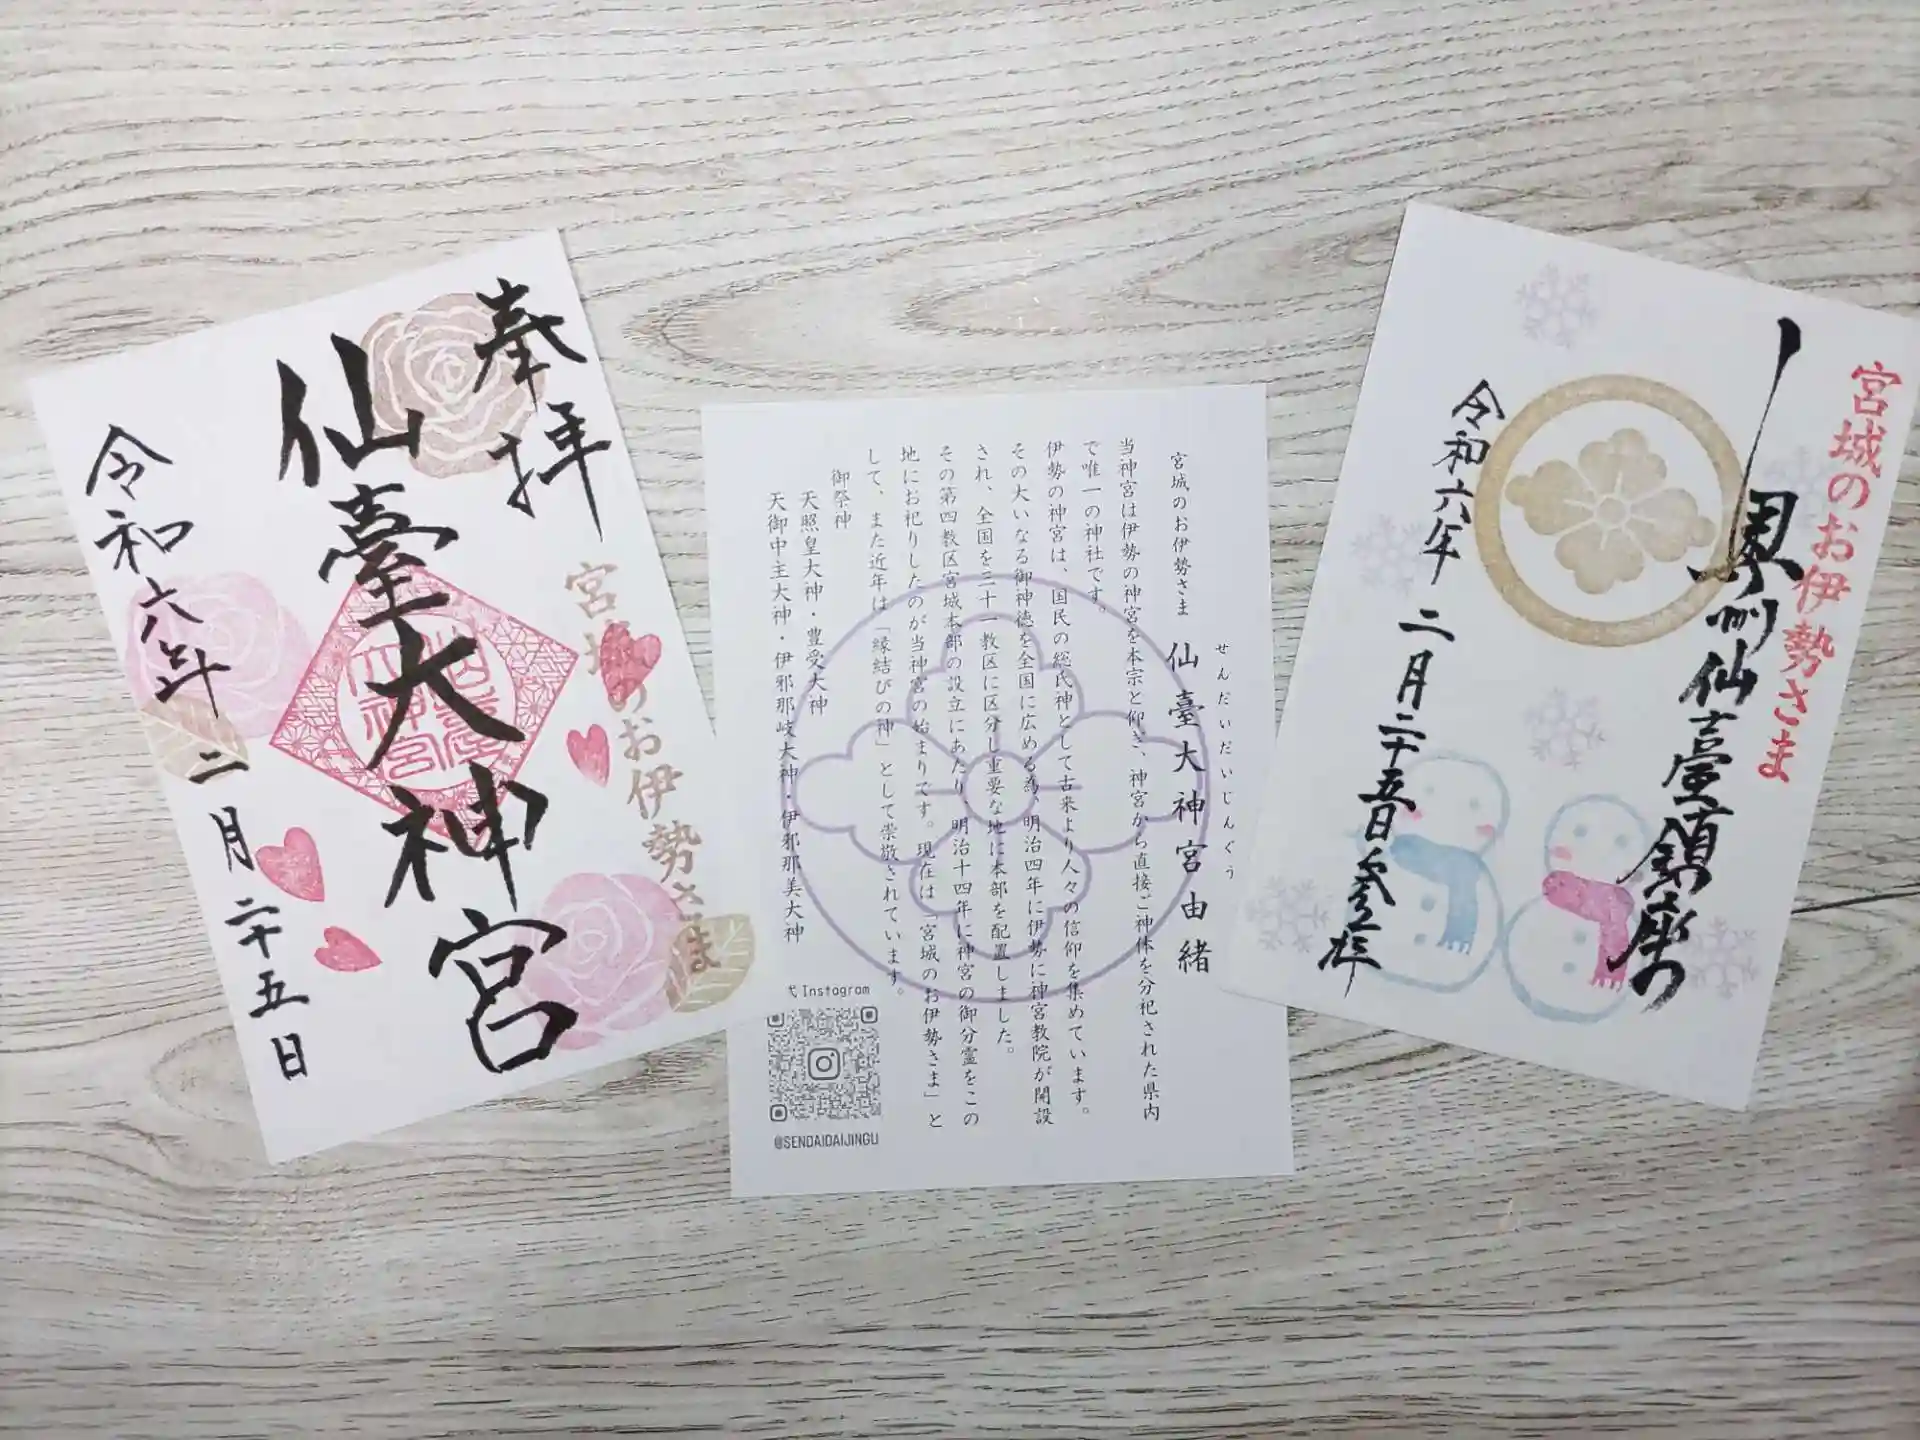 奉拝
仙臺大神宮
宮城のお伊勢さま
令和六年
二月二十五日
せんだいだいじんぐう
宮城のお伊勢さま 仙臺大神宮由緒
当神宮は伊勢の神宮を本宗と仰ぎ、神宮から直接ご神体を分祀された県内
で唯一の神社です。
伊勢の神宮は、国民の総氏神として古来より人々の信仰を集めています。
その大いなる御神徳を全国に広める為、明治四年に伊勢に神宮教院が開設
され、全国を三十一教区に区分し重要な地に本部を配置しました。
その第四教区宮城本部の設立にあたり、明治十四年に神宮の御分霊をこの
地にお祀りしたのが当神宮の始まりです。現在は「宮城のお伊勢さま」と
して、また近年は「縁結びの神」として崇敬されています。
御祭神
天照皇大神・豊受大神
天御中主大神・伊邪那岐大神・伊邪那美大神
Instagram
@SENDAIDAIJINGU
宮城のお伊勢さま
仙臺鎮座
令和六年 二月二十五日 参拝